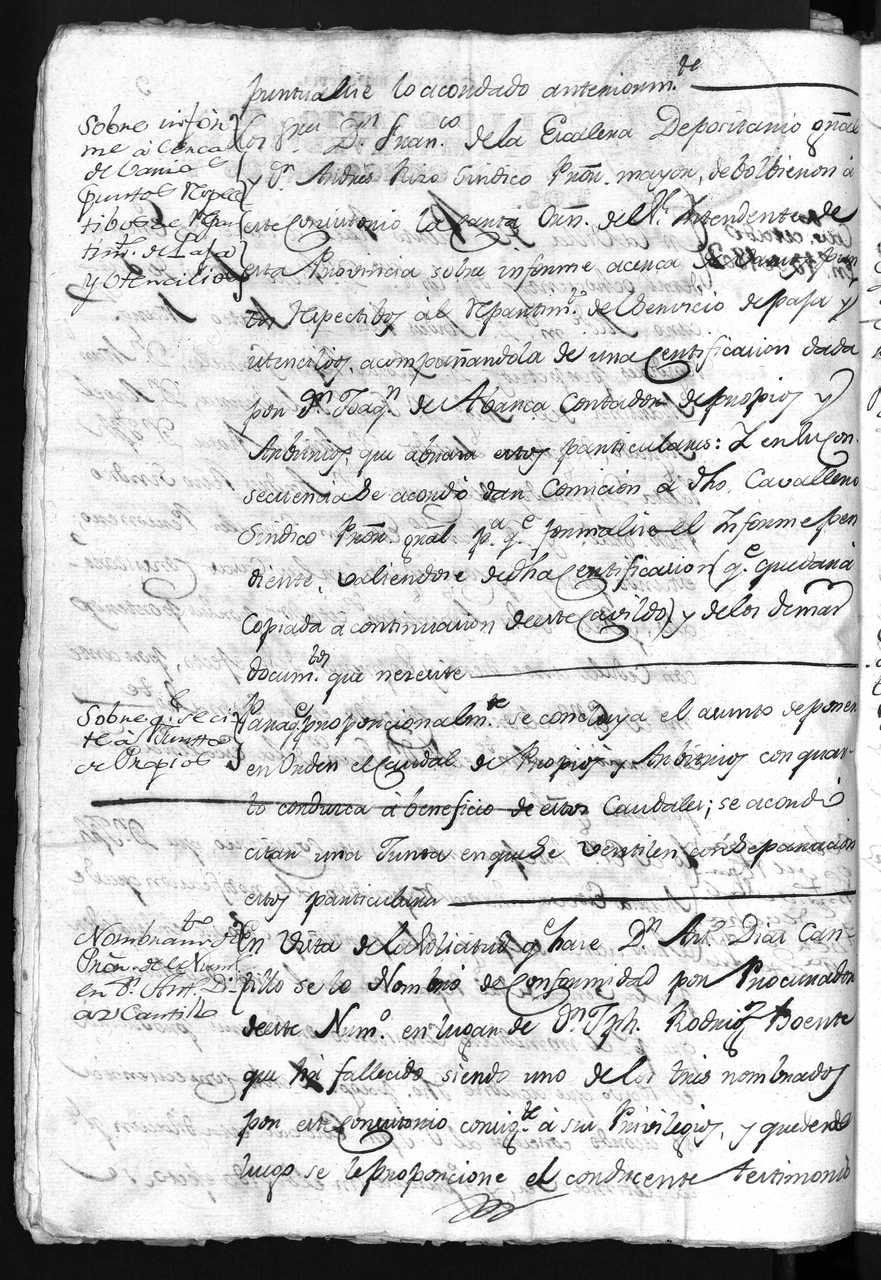 puntualise lo acordado anteriorm.te
Sobre infor-
me à cerca
de barios
puntos respec-
tibos àe Repar-
tim.to de Paja
y Utencilios
Los Sres. D.n Fran.co de la Escalera Depositario gral
y D.n Andrés Rizo Sindico Pror. mayor, debolbieron à
este Concistorio la Orn. del Sr. Intendente de
esta Provincia sobre informe acerca de barios pun-
tos respectibos àl repartim.to del servicio de paja y
utencilios, acompañandola de una Certificacion dada
por D.n Joaq.n de Abarca Contador de propios y
Arbitrios, que abraza estos particulares: Y en su con-
secuencia se acordò dar Comicion à dho. Cavallero
Sindico Pror. gral. p.a q.e formalise el Informe pen
diente, valiendose de dha Certificacion (q.e quedarà
Copiada à continuacion de este Cavildo) y de los demàs
docum.tos que necesite
Sobre q.e se ci-
te à Junta
de Propios
Para q.e proporcionalm.te se concluya el asunto de poner
en orden el Caudal de Propios y Arbitrios con quan-
to condusca à beneficio de estos Caudales; se acordò
citar una Junta en que se ventilen con separacion
estos particulares
Nombram.to de
Pror. de el Num.o
en D.n Ant.o Di-
az Cantillo
En vista de la solicitud q.e hace D.n Ant.o Diaz Can-
tillo se lo Nombrò de Conformidad por Procurador
de este Num.o en lugar de D.n Jph. Rodrig.z Boente
que hà fallecido, siendo uno de los tres nombrados
por este Concistorio consig.te à sus Privilegios, y que desde
luego se le proporcione el conducente testimonio